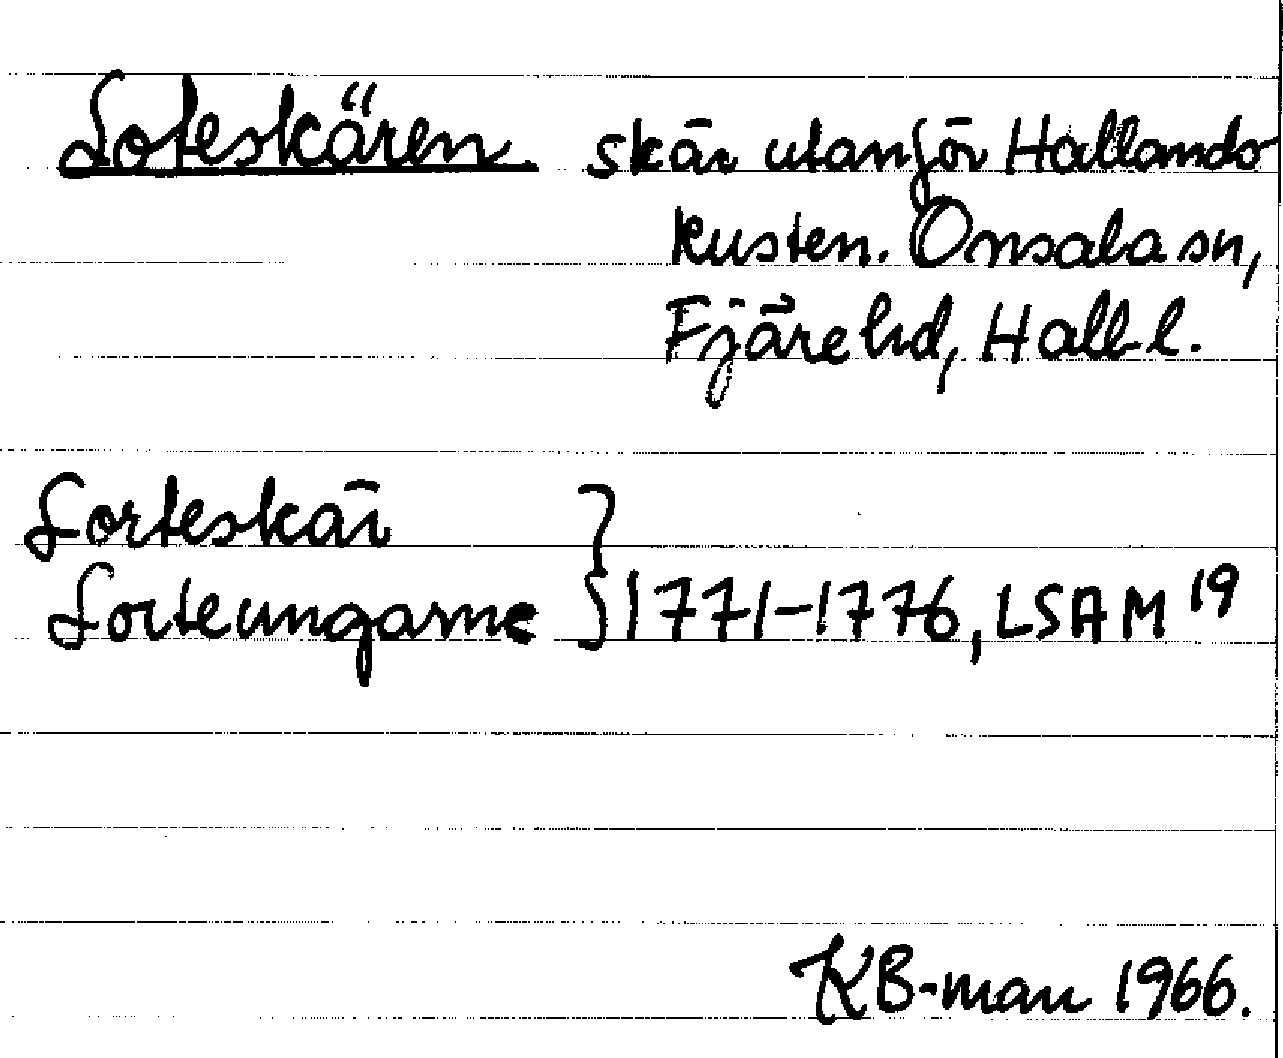 Loteskären. skär utanför Hallands
kusten. Onsala sn,
Fjäre hd, Hall. l.
Lorteskär
Lorteungarne } 1771-1776, LSA M 19
KB-man 1966.